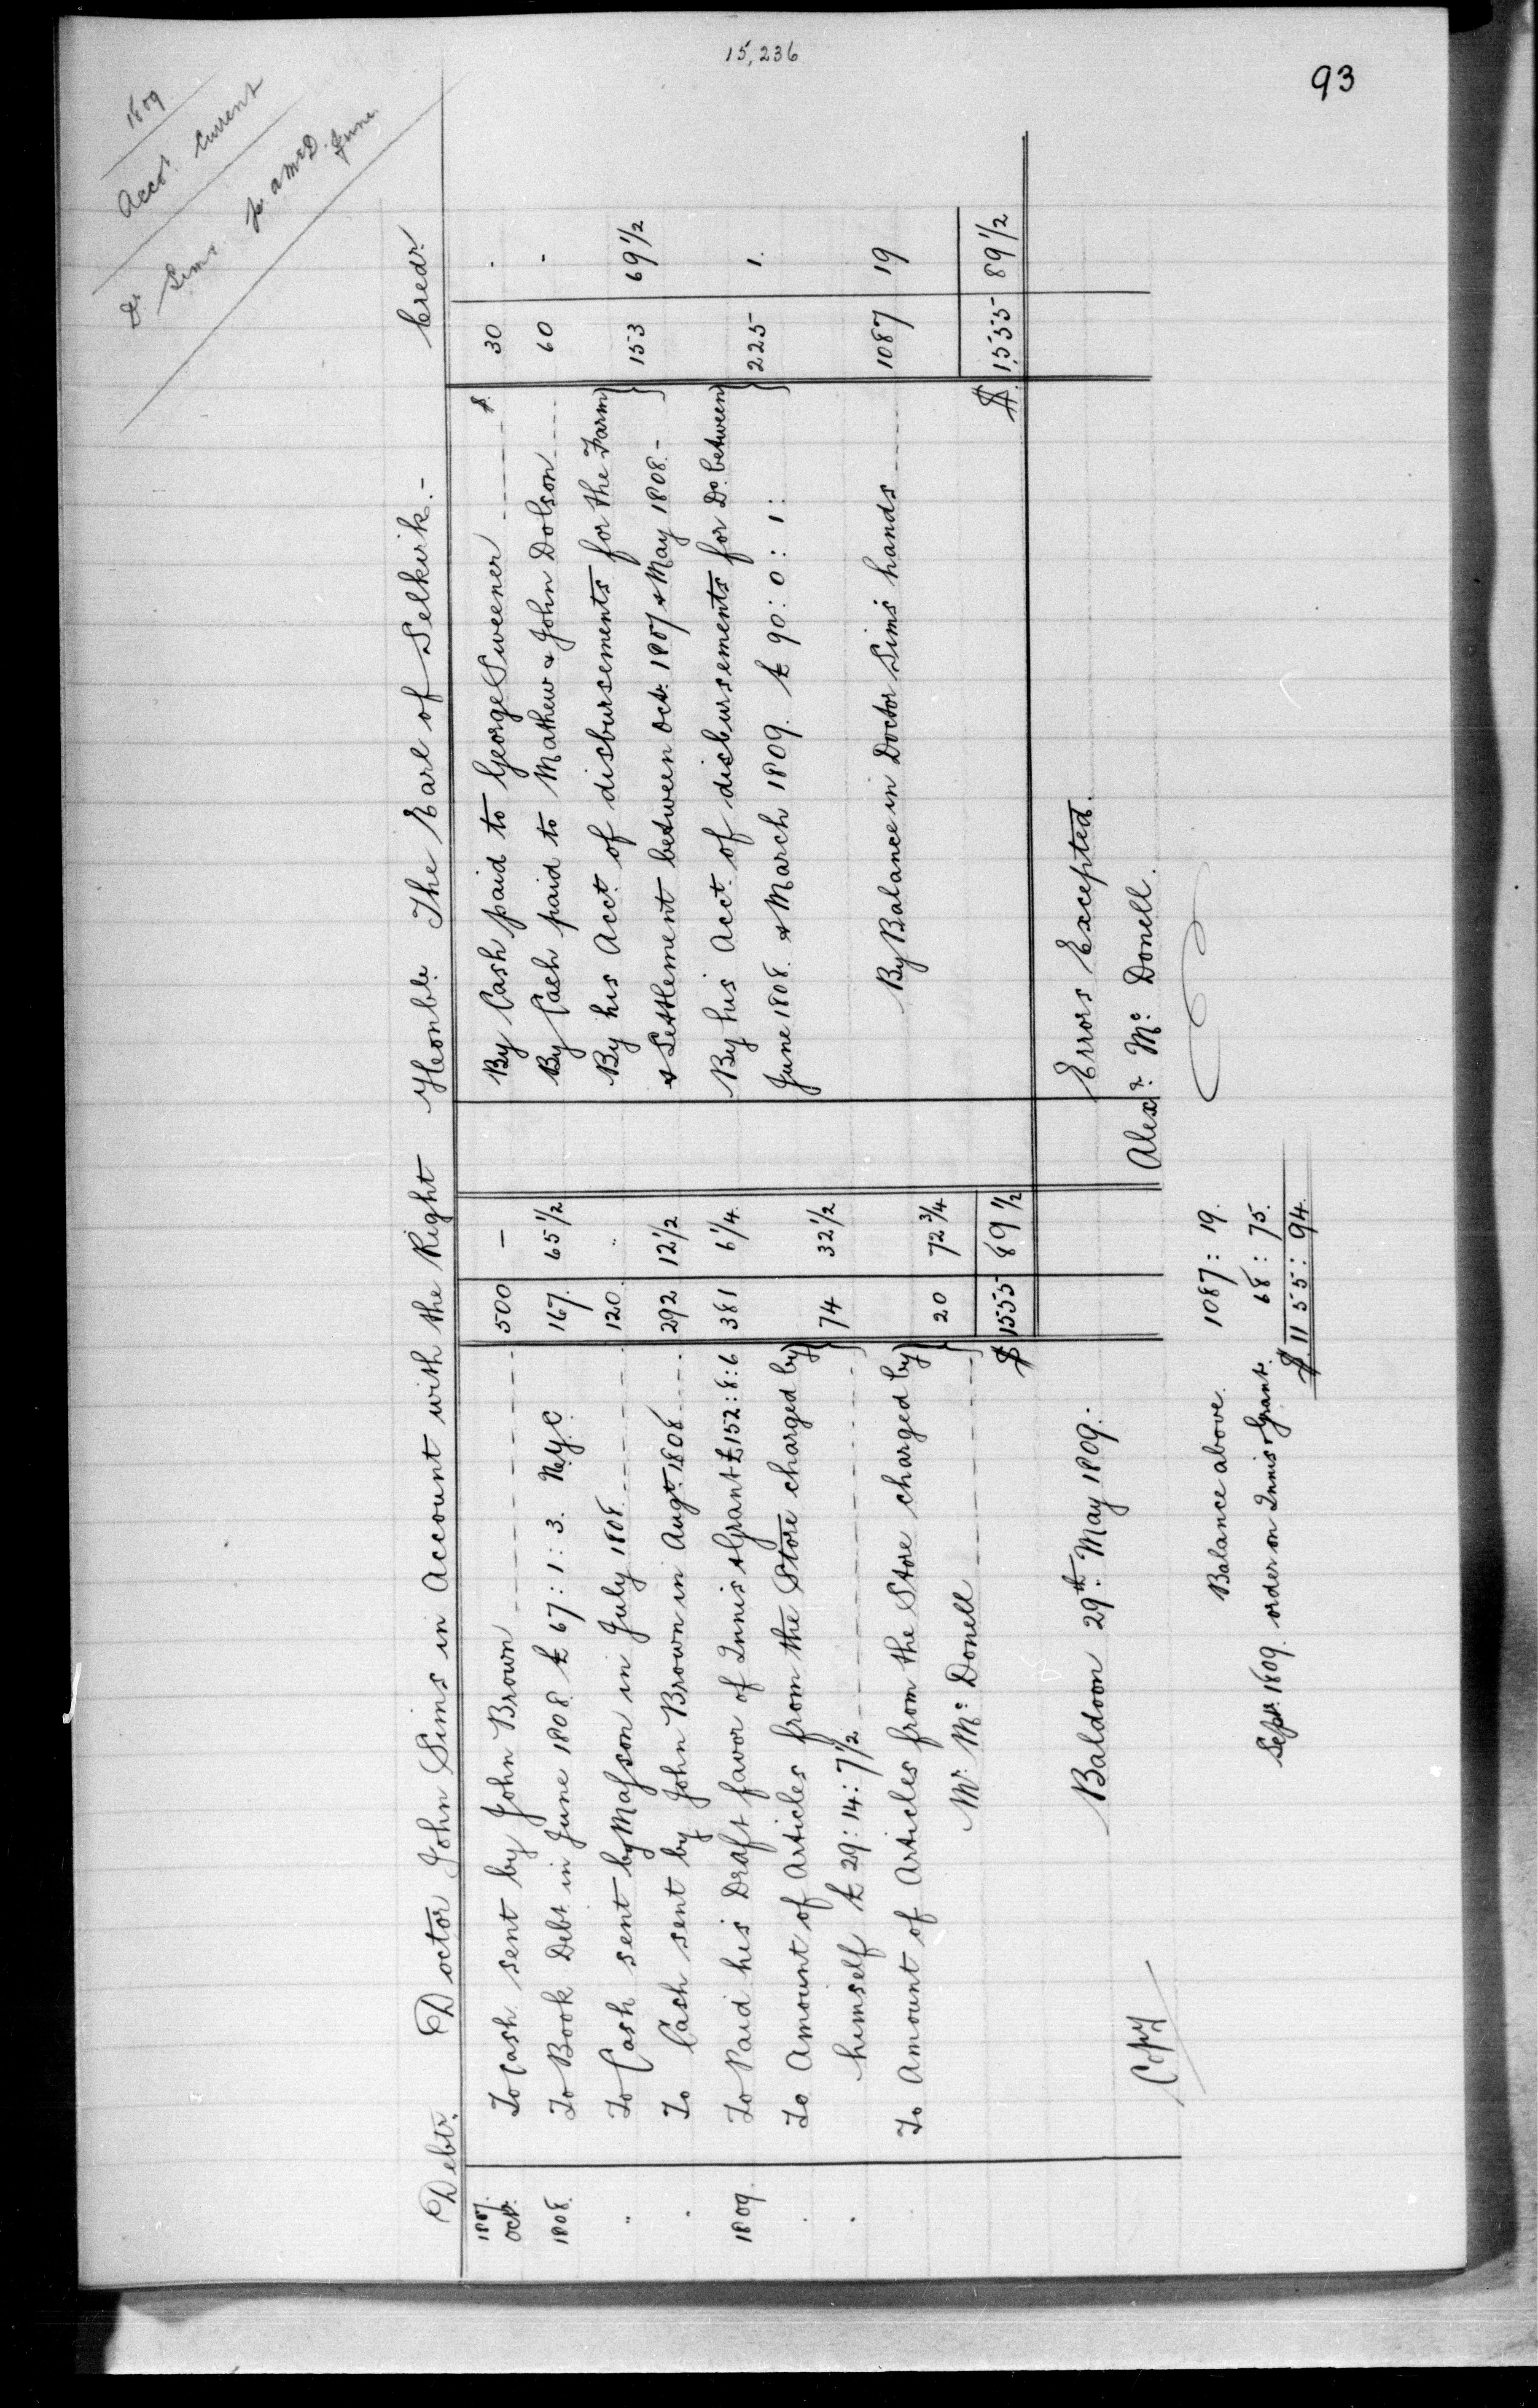 15,236
93
1809
Acct. Current
Dr Sims pr. A McD. June
Debtr. Doctor John Sims in Account with the Right Honble. The Earl of Selkirk.- Credr.
1807. Octr. To Cash sent by John Brown 500 -
1808. To Book Debt in June 1808 £ 67:1:3. N.Y.C. 167. 65 1/2
" To Cash sent by Masson in July 1808. 120. "
" To Cash sent by John Brown in Augt. 1808 292 12 1/2
1809. To Paid his Draft favor of Innis & Grant £152:8:6 381 6 1/4
To Amount of Articles from the Store charged by
himself £ 29:14:7 1/2 74 32 1/2
To Amount of Articles from the Store charged by
Mr. Mc Donell 20 72 3/4
$ 1555 89 1/2
By Cash paid to George Sweener $ 30 .
By Cash paid to Mathew & John Dolson 60 -
By his Acct. of disbursements for the Farm
& Settlement between Octr. 1807 & May 1808.- 153 69 1/2
By his Acct. of disbursements for Do. between
June 1808. & March 1809. £ 90:0:1: 225 1.
By Balance in Doctor Sims hands 1087 19
$ 1555 89 1/2
Baldoon 29th. May 1809.
Errors Excepted.
Alexr. Mc Donell.
Copy
Balance above. 1087: 19.
Septr. 1809. order on Innis & Grant. 68: 75.
$ 1155: 94.